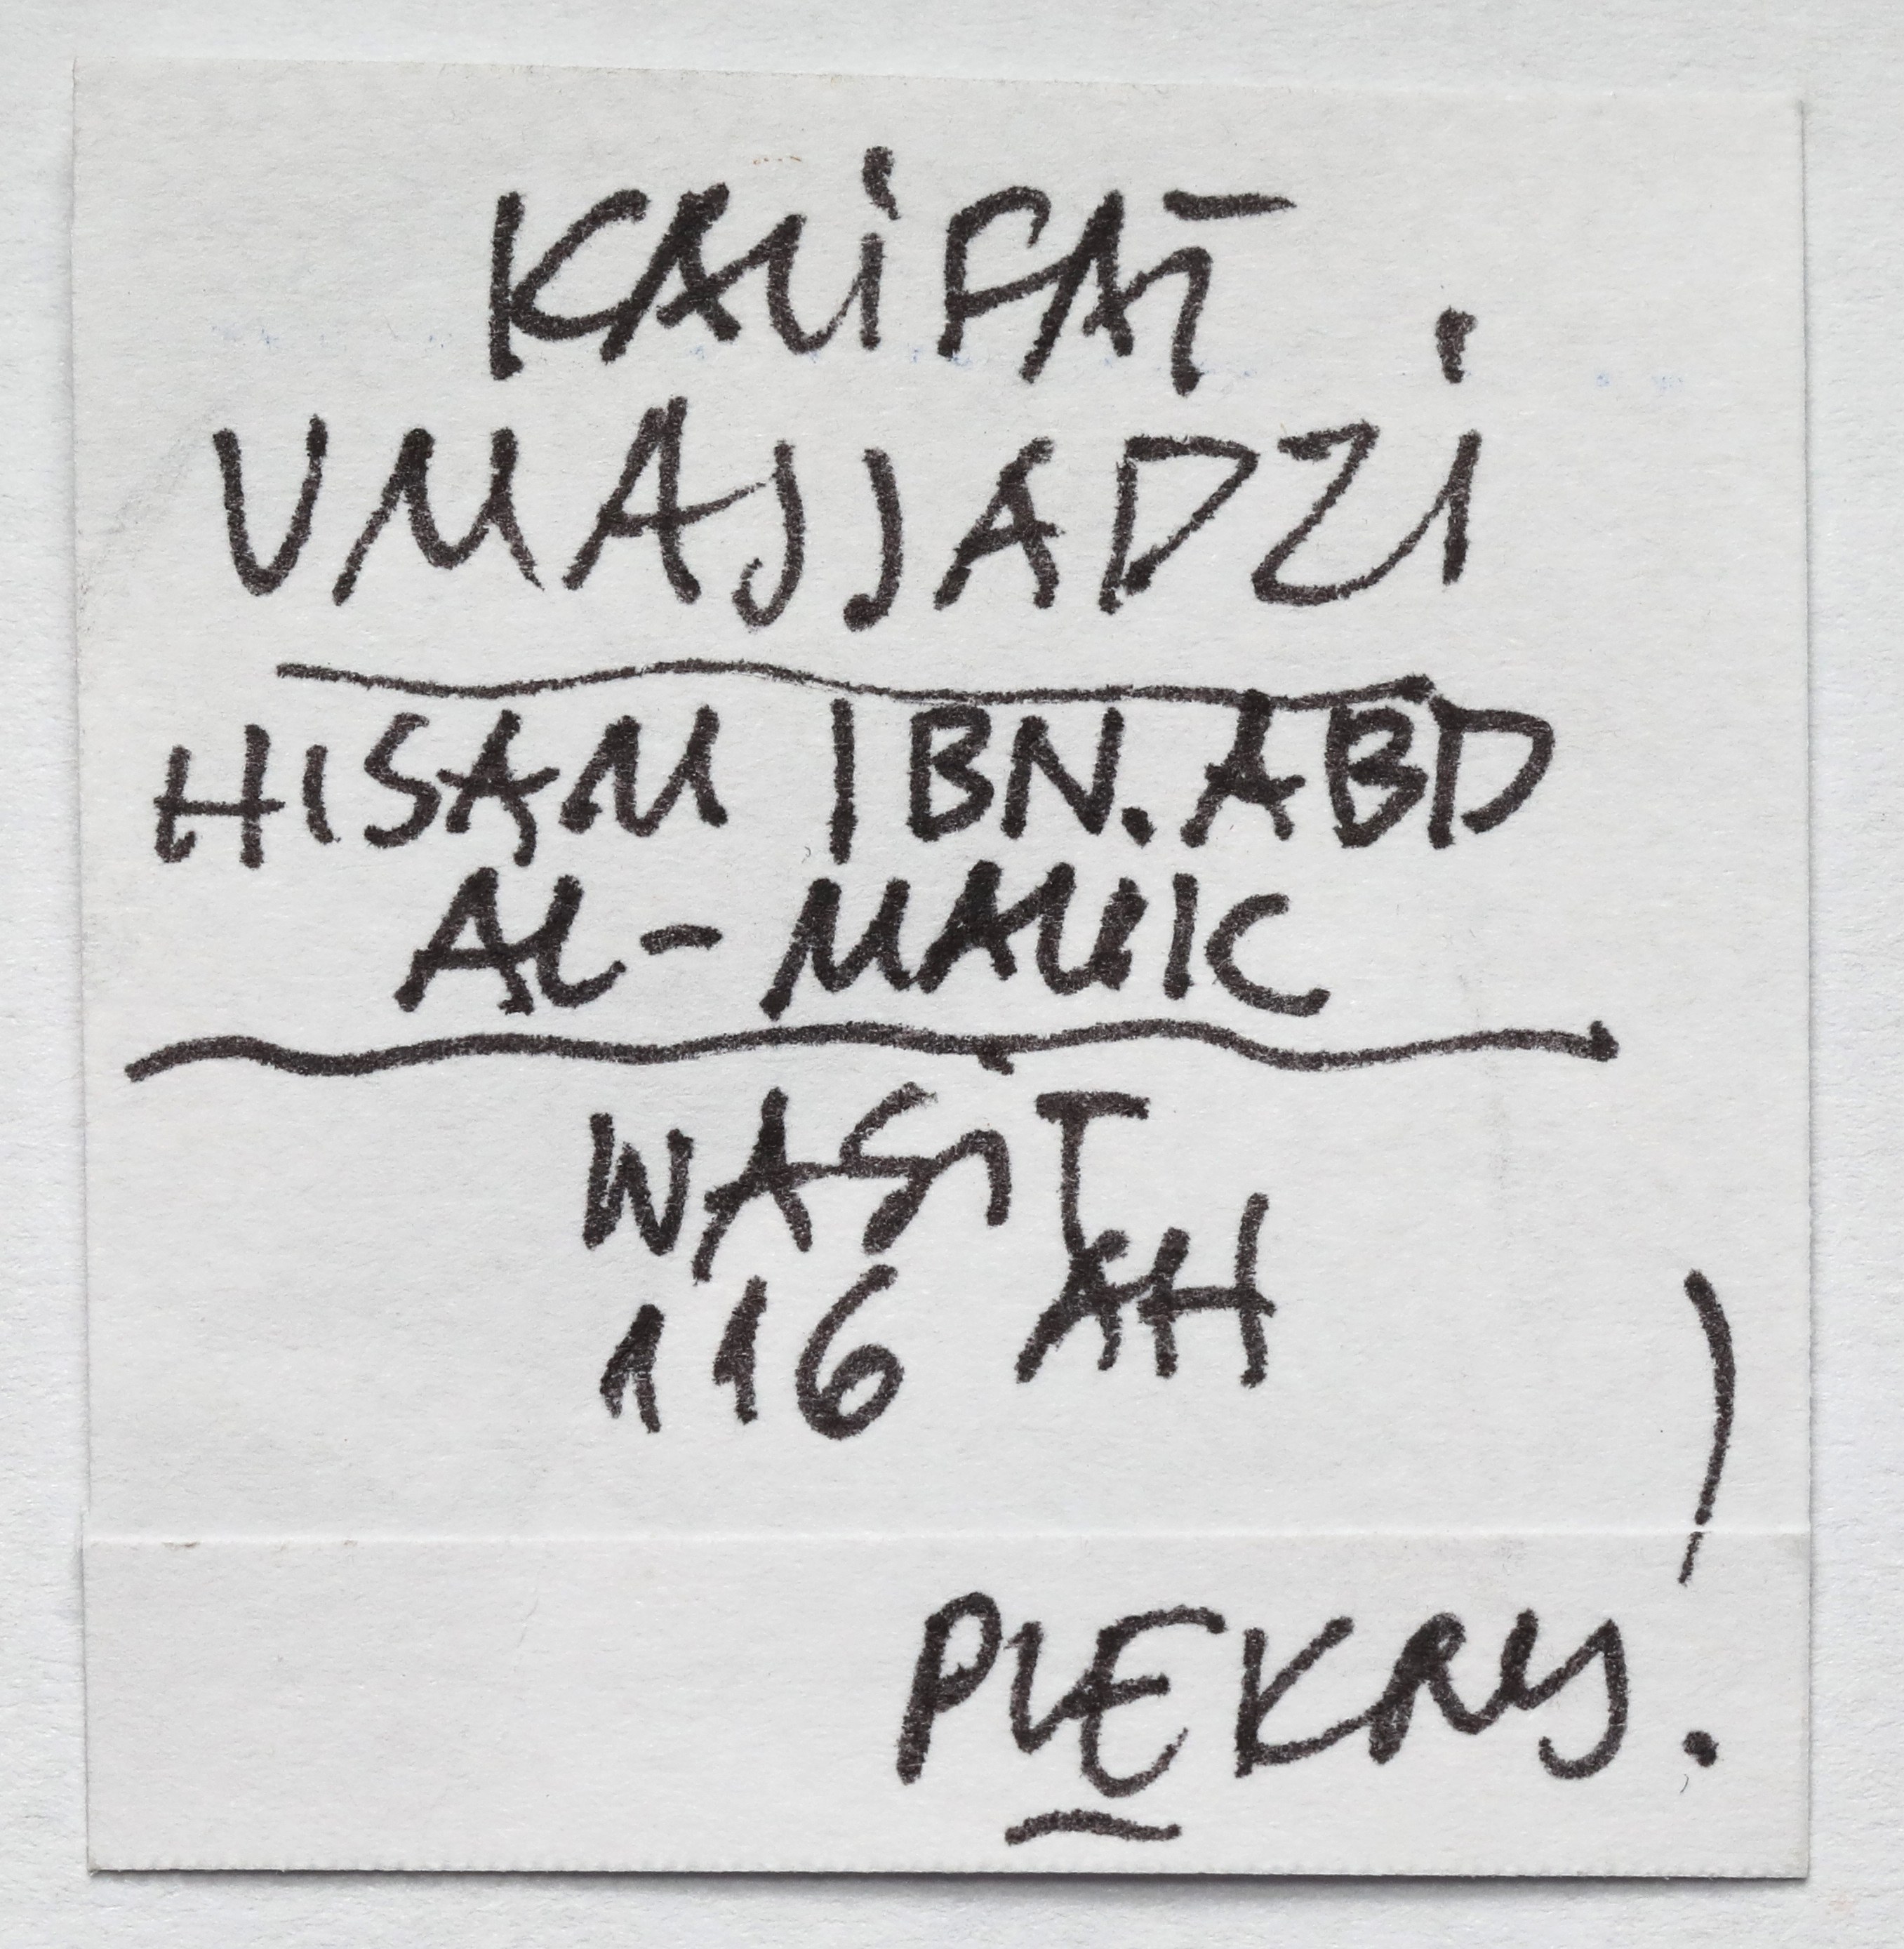 KALiFAT
UMAJJADZi
HISAM IBN. ABD
AL-MALIK
WASiT
116 AH
PIĘKNY!